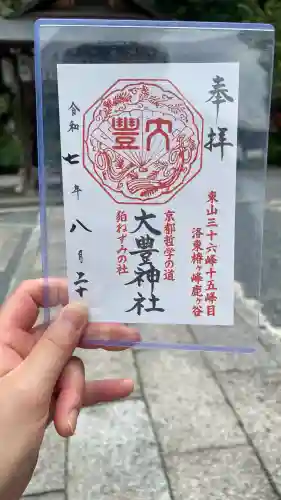 奉拝
東山三十六峰十五峰目
洛東椿ヶ峰鹿ヶ谷
大豊
京都哲学の道
大豊神社
狛ねずみの社
令和七年八月二十